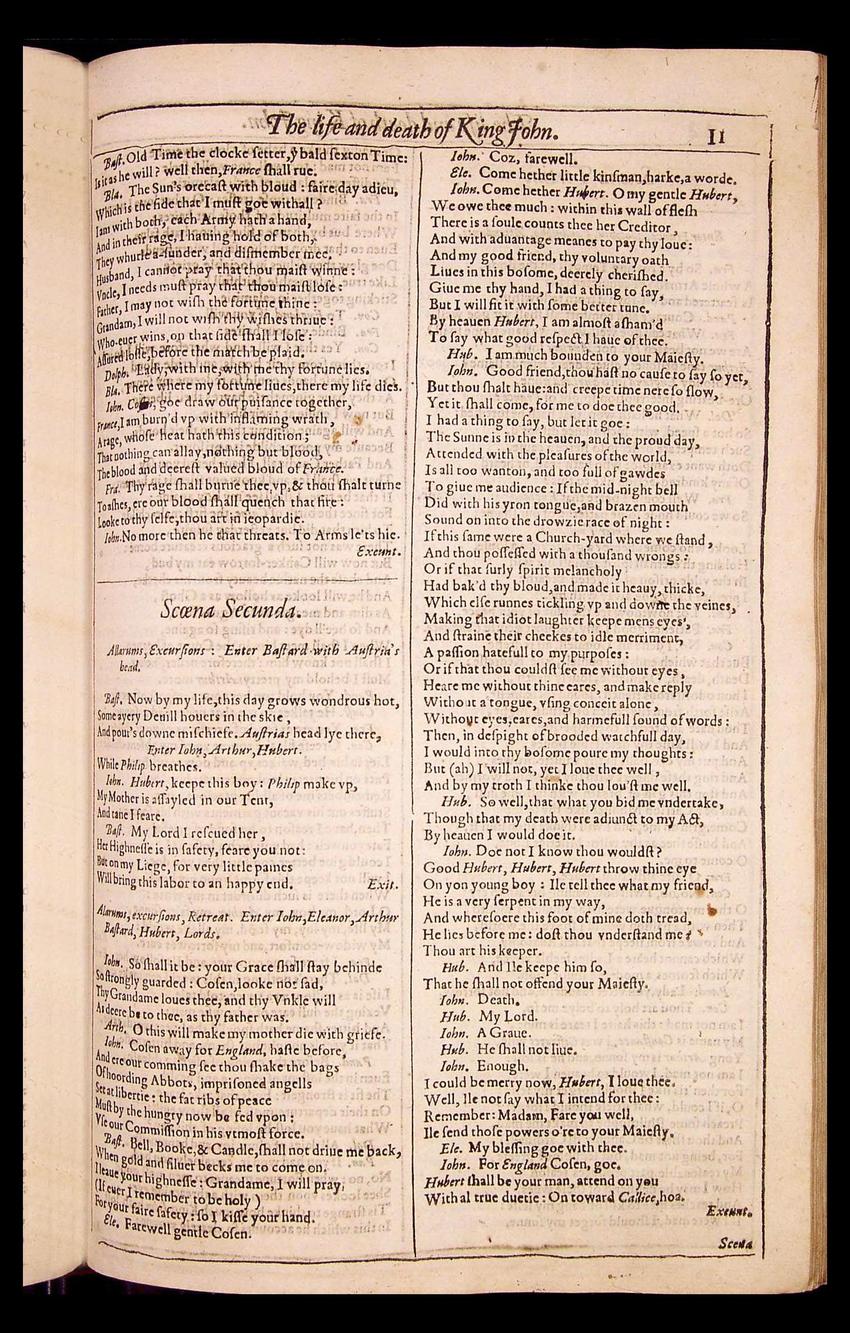 The life and death of King John.
11
Bast. Old Time the clocke setter, ẏ bald sexton Time:
Is it as he will? well then, France shall rue.
Bla. The Sun's orecast with bloud: faire day adieu,
Which is the side that I must goe withall?
I am with both, each Army hath a hand,
And in their rage, I hauing hold of both,
They whurle a-sunder, and dismember mee.
Husband, I cannot pray that thou maist winne:
Vncle, I needs must pray that thou maist lose:
Father, I may not wish the fortune thine:
Grandam, I will not wish thy wishes thriue:
Who-euer wins, on that side shall I lose:
Assured losse, before the match be plaid.
Dolph. Lady, with me, with me thy fortune lies.
Bla. There where my fortune liues, there my life dies.
Iohn. Cosen, goe draw our puisance together,
France, I am burn'd vp with inflaming wrath,
A rage, whose heat hath this condition;
That nothing can allay, nothing but blood,
The blood and deerest valued bloud of France.
Fra. Thy rage shall burne thee vp, & thou shalt turne
To ashes, ere our blood shall quench that fire:
Looke to thy selfe, thou art in ieopardie.
Iohn. No more then he that threats. To Arms le'ts hie.
Exeunt.
Scœna Secunda.
Allarums, Excursions: Enter Bastard with Austria's
head.
Bast. Now by my life, this day grows wondrous hot,
Some ayery Deuill houers in the skie,
And pour's downe mischiefe. Austrias head lye there,
Enter Iohn, Arthur, Hubert.
While Philip breathes.
Iohn. Hubert, keepe this boy: Philip make vp,
My Mother is assayled in our Tent,
And tane I feare.
Bast. My Lord I rescued her,
Her Highnesse is in safety, feare you not:
But on my Liege, for very little paines
Will bring this labor to an happy end. Exit.
Alarums, excursions, Retreat. Enter Iohn, Eleanor, Arthur
Bastard, Hubert, Lords.
Iohn. So shall it be: your Grace shall stay behinde
So strongly guarded: Cosen, looke not sad,
Thy Grandame loues thee, and thy Vnkle will
As deere be to thee, as thy father was.
Arth. O this will make my mother die with griefe.
Iohn. Cosen away for England, haste before,
And ere our comming see thou shake the bags
Of hoording Abbots, imprisoned angells
Set at libertie: the fat ribs of peace
Must by the hungry now be fed vpon:
Vse our Commission in his vtmost force.
Bast. Bell, Booke, & Candle, shall not driue me back,
When gold and siluer becks me to come on.
I leaue your highnesse: Grandame, I will pray
(If euer I remember to be holy)
For your faire safety: so I kisse your hand.
Ele. Farewell gentle Cosen.
Iohn. Coz, farewell.
Ele. Come hether little kinsman, harke, a worde.
Iohn. Come hether Hubert. O my gentle Hubert,
We owe thee much: within this wall of flesh
There is a soule counts thee her Creditor,
And with aduantage meanes to pay thy loue:
And my good friend, thy voluntary oath
Liues in this bosome, deerely cherished.
Giue me thy hand, I had a thing to say,
But I will fit it with some better tune.
By heauen Hubert, I am almost asham'd
To say what good respect I haue of thee.
Hub. I am much bounden to your Maiesty.
Iohn. Good friend, thou hast no cause to say so yet,
But thou shalt haue: and creepe time nere so slow,
Yet it shall come, for me to doe thee good.
I had a thing to say, but let it goe:
The Sunne is in the heauen, and the proud day,
Attended with the pleasures of the world,
Is all too wanton, and too full of gawdes
To giue me audience: If the mid-night bell
Did with his yron tongue, and brazen mouth
Sound on into the drowzie race of night:
If this same were a Church-yard where we stand,
And thou possessed with a thousand wrongs:
Or if that surly spirit melancholy
Had bak'd thy bloud, and made it heauy, thicke,
Which else runnes tickling vp and downe the veines,
Making that idiot laughter keepe mens eyes,
And straine their cheekes to idle merriment,
A passion hatefull to my purposes:
Or if that thou couldst see me without eyes,
Heare me without thine eares, and make reply
Without a tongue, vsing conceit alone,
Without eyes, eares, and harmefull sound of words:
Then, in despight of brooded watchfull day,
I would into thy bosome poure my thoughts:
But (ah) I will not, yet I loue thee well,
And by my troth I thinke thou lou'st me well.
Hub. So well, that what you bid me vndertake,
Though that my death were adiunct to my Act,
By heauen I would doe it.
Iohn. Doe not I know thou wouldst?
Good Hubert, Hubert, Hubert throw thine eye
On yon young boy: Ile tell thee what my friend,
He is a very serpent in my way,
And wheresoere this foot of mine doth tread,
He lies before me: dost thou vnderstand me?
Thou art his keeper.
Hub. And Ile keepe him so,
That he shall not offend your Maiesty.
Iohn. Death.
Hub. My Lord.
Iohn. A Graue.
Hub. He shall not liue.
Iohn. Enough.
I could be merry now, Hubert, I loue thee.
Well, Ile not say what I intend for thee:
Remember: Madam, Fare you well,
Ile send those powers o're to your Maiesty.
Ele. My blessing goe with thee.
Iohn. For England Cosen, goe.
Hubert shall be your man, attend on you
With al true duetie: On toward Callice, hoa.
Exeunt.
Scena